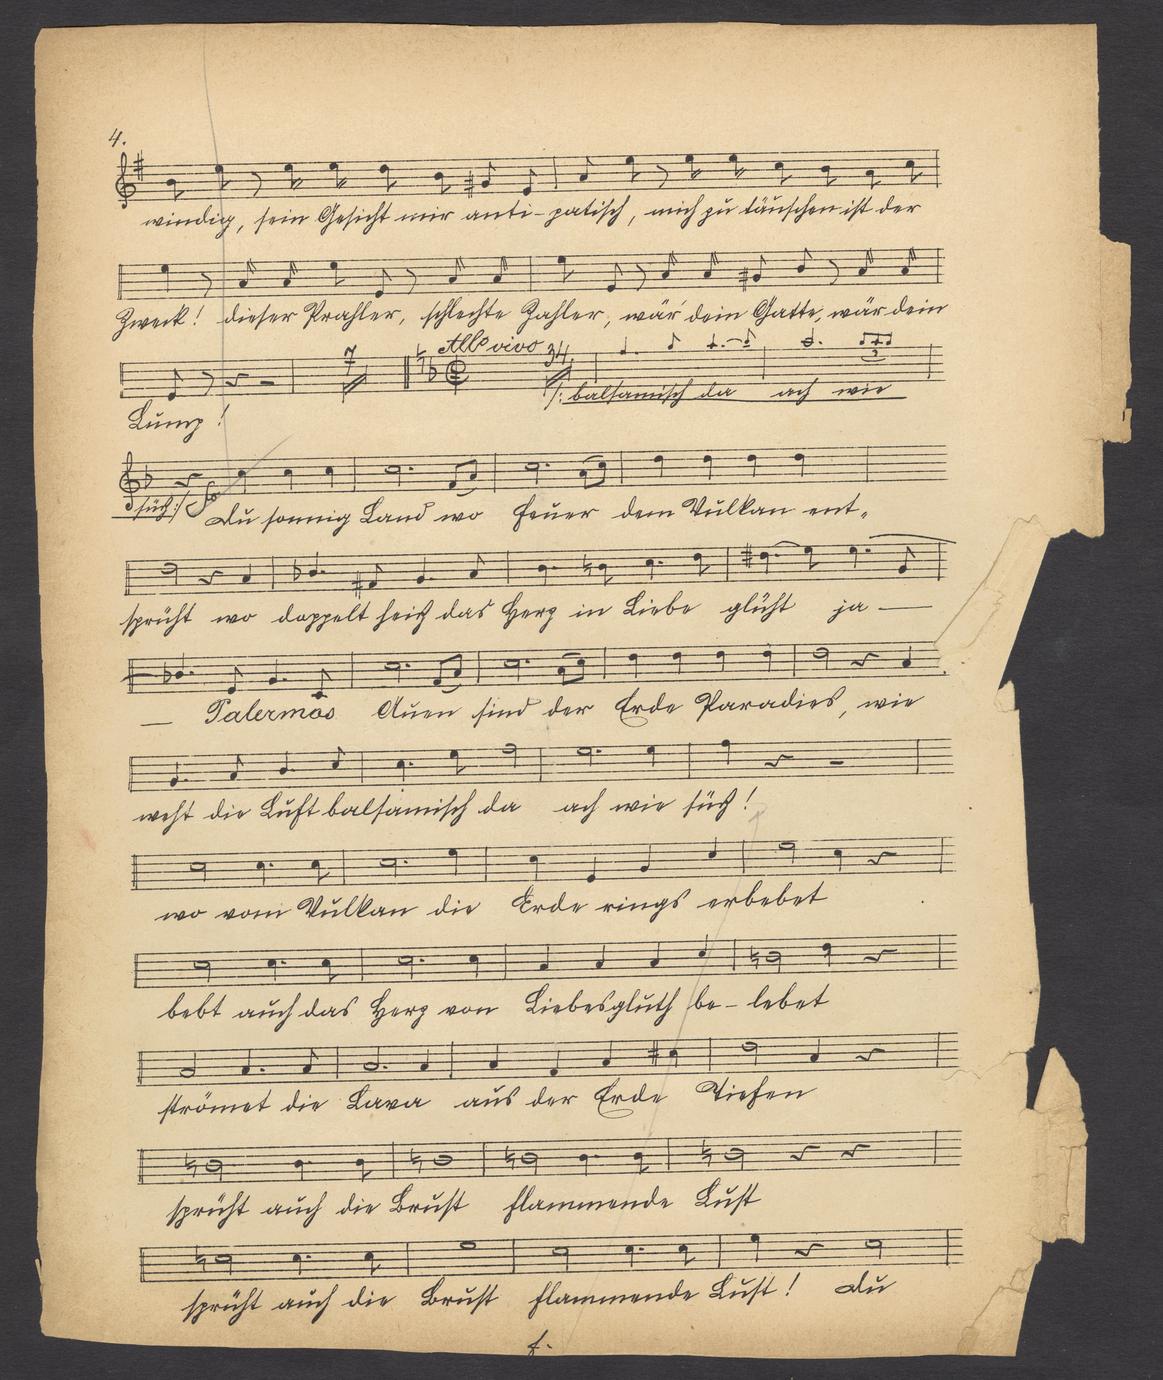 4.
windig, sein Gesicht mir anti-patisch, mich zu täuschen ist der
Zweck! dieser Prahler, schlechte Zahler, wär dein Gatte, wär dein
7 Allo vivo 34
/: balsamisch da ach wie
Lump!
süß :/ Du sonnig Land wo Feuer dem Vulkan ent-
sprüht wo doppelt heiß das Herz in Liebe glüht ja —
— Palermos Auen sind der Erde Paradies, wie
weht die Luft balsamisch da ach wie süß!
wo vom Vulkan die Erde rings erbebet
bebt auch das Herz von Liebesgluth be-lebet
strömet die Lava aus der Erde Tiefen
sprüht auch die Brust flammende Lust
sprüht auch die Brust flammende Lust! Du
f.